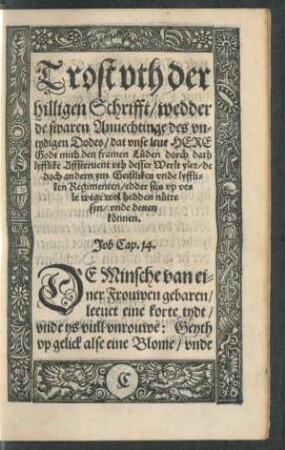 Trost vth der
hilligen Schrifft / wedder
de swaren Anuechtinge des vn-
tydigen Dodes / dat vnse leue HERE
Godt mith den framen Lüden dorch dath
lyfflike Afftredent vth desser Werlt ylet / de
doch andern ym Geistliken vnde lyffli-
ken Regimenten / edder süs vp ve-
le wege wol hedden nütte
syn / vnde denen
können.
Job Cap. 14.
DE Minsche van ei-
ner Frouwen gebaren /
leeuet eine korte tydt /
vnde ys vull vnrouwe: Geyth
vp gelick alse eine Blome / vnde